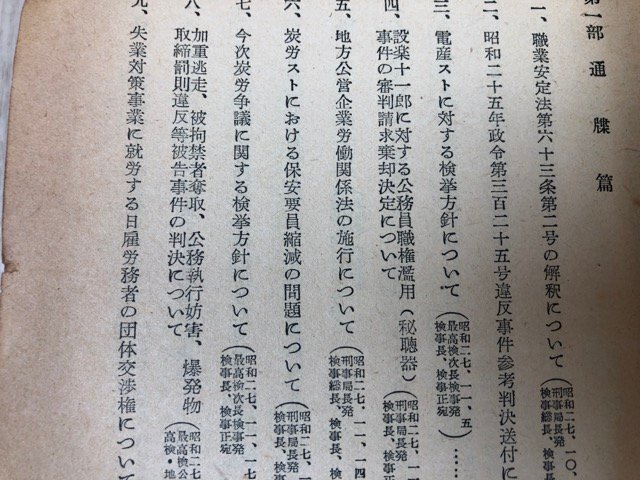 第一部 通牒篇
一、職業安定法第六十三条第二号の解釈について（昭和二七、一〇、
刑事局長発
検事総長、検事長、
二、昭和二十五年政令第三百二十五号違反事件参考判決送付に
三、電産ストに対する検挙方針について（昭和二七、一一、五
最高検次長検事発
検事長、検事正宛）……
四、設楽十一郎に対する公務員職権濫用（秘聴器）
事件の審判請求棄却決定について（昭和二七、一一
刑事局長発
検事長、検
五、地方公営企業労働関係法の施行について（昭和二七、一一、一四
刑事局長発
検事総長、検事長、検
六、炭労ストにおける保安要員縮減の問題について（昭和二七、一
刑事局長発
検事長、検
七、今次炭労争議に関する検挙方針について（昭和二七、一一、一七
最高検次長検事発
検事長、検事正宛
八、加重逃走、被拘禁者奪取、公務執行妨害、爆発物
取締罰則違反等被告事件の判決について（昭和二七
最高検公
高検・地
九、失業対策事業に就労する日雇労務者の団体交渉権につい